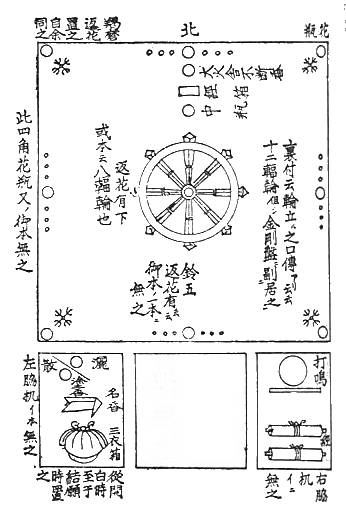 花瓶
北
羯磨
返花
置之
自余
同之
大火舎不断香
箱
中瓶
裏付云輪立之口傳了云云
十二輻輪但金剛盤副居之
返花有下
或本云八輻輪也
鈴五
返花有云云
御本ノ一本ニ
無之
此四角花瓶又ノ御本無之
打鳴
右脇
机
イニ
無之
灑
散
塗香
名香
三衣箱
從開
白時
至于
結願
時置
之
左脇机イ本無之